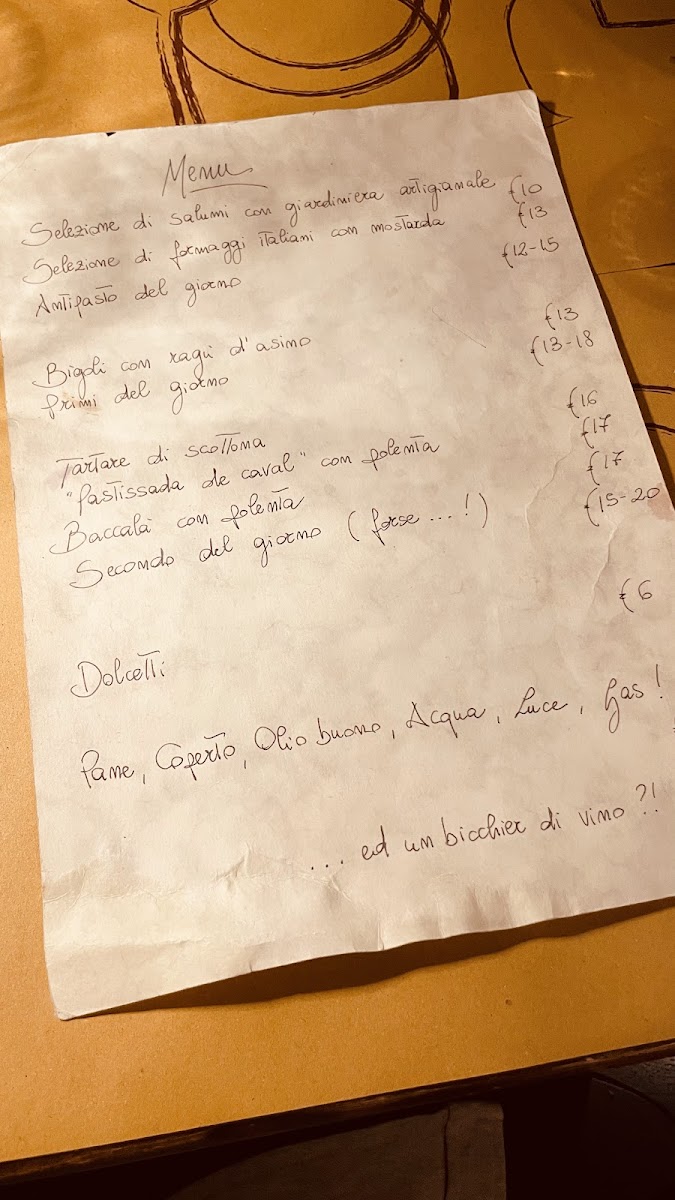 Menu
Selezione di salumi con giardiniera artigianale €10
Selezione di formaggi italiani con mostarda €13
Antipasto del giorno €12-15
Bigoli con ragù d'asino €13
Primi del giorno €13-18
Tartare di scottona €16
"Pastissada de caval" con polenta €17
Baccalà con polenta €17
Secondo del giorno (forse...!) €15-20
Dolcetti €6
Pane, Coperto, Olio buono, Acqua, Luce, Gas!
... ed un bicchier di vino?!